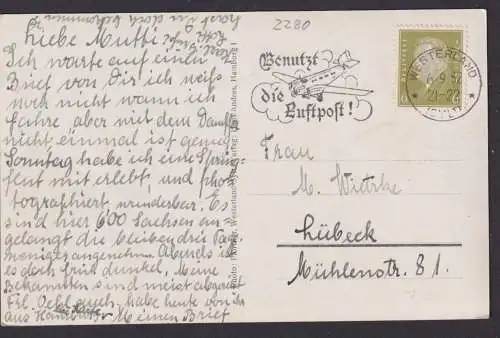 2280
Liebe Mutti!
Ich warte auf einen
Brief von Dir ich weiß
noch nicht wann ich
fahre aber mit dem Dampfer
nicht einmal ist genug
Sonntag habe ich eine Spring-
flut mit erlebt, und phot
tographiert, wunderbar. Es
sind hier 600 Sachsen an-
gelangt die bleiben drei Tage
weniger angenehm. Abends ist
es doch früh dunkel, Meine
Bekannten sind meist abgereist
Frl. auch, habe heute von
aus Hamburg Meinen Brief
hast Du doch bekommen
Benutzt
die
Luftpost!
WESTERLAND
21-22
(SYLT)
Frau
M. Wietzke
Lübeck
Mühlenstr. 81.